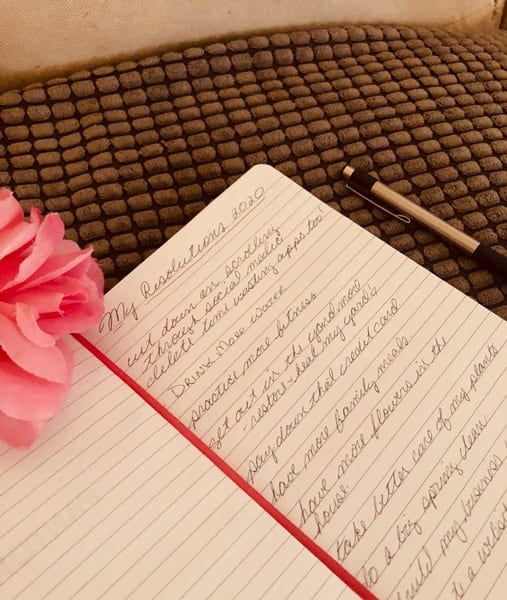 My Resolutions 2020
cut down on scrolling
through social media
delete time wasting apps too!
Drink More Water
practice more fitness
get out in the yard more
-restore + heal my yard's
pay down that credit card
have more family meals
have more flowers in the
house.
take better care of my plants
do a big spring clean.
build my business